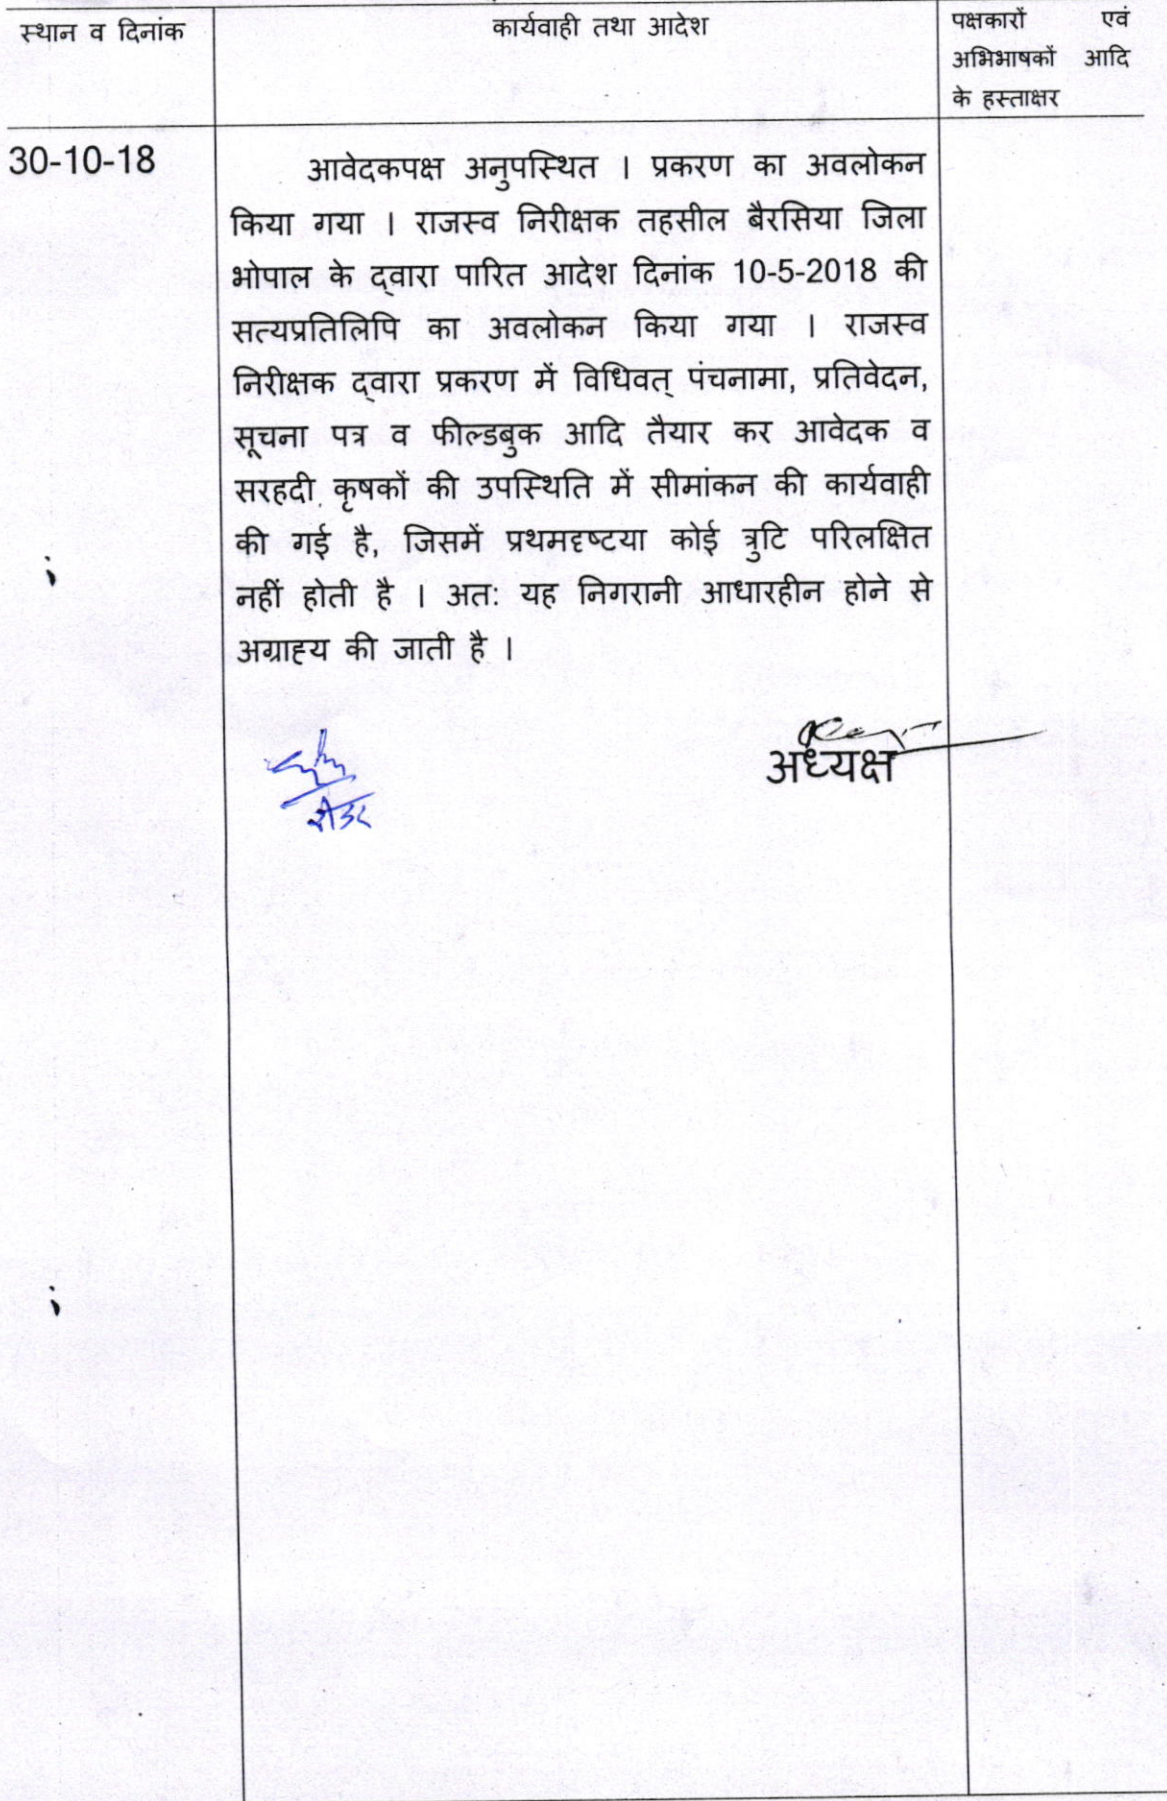 स्थान व दिनांक
कार्यवाही तथा आदेश
पक्षकारों एवं
अभिभाषकों आदि
के हस्ताक्षर
30-10-18
आवेदकपक्ष अनुपस्थित । प्रकरण का अवलोकन
किया गया । राजस्व निरीक्षक तहसील बैरसिया जिला
भोपाल के द्वारा पारित आदेश दिनांक 10-5-2018 की
सत्यप्रतिलिपि का अवलोकन किया गया । राजस्व
निरीक्षक द्वारा प्रकरण में विधिवत् पंचनामा, प्रतिवेदन,
सूचना पत्र व फील्डबुक आदि तैयार कर आवेदक व
सरहदी कृषकों की उपस्थिति में सीमांकन की कार्यवाही
की गई है, जिसमें प्रथमदृष्टया कोई त्रुटि परिलक्षित
नहीं होती है । अत: यह निगरानी आधारहीन होने से
अग्राह्य की जाती है ।
अध्यक्ष
रीडर